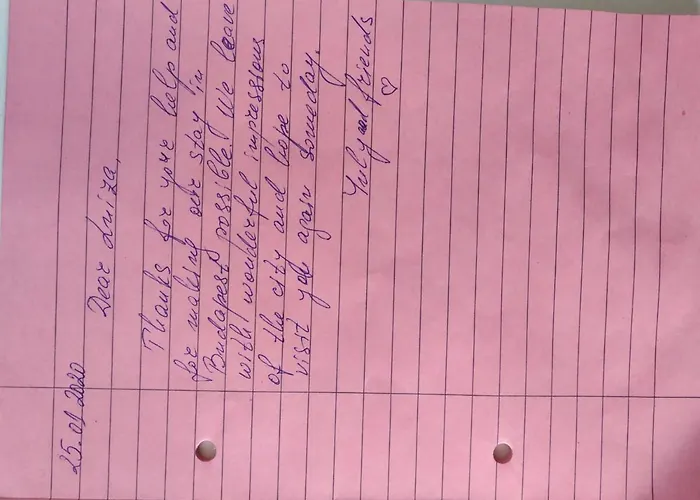 25.01 2020
Dear Luiza,
Thanks for your help and
for making our stay in
Budapest possible! We leave
with wonderful impressions
of the city and hope to
visit you again someday.
July and friends
♡